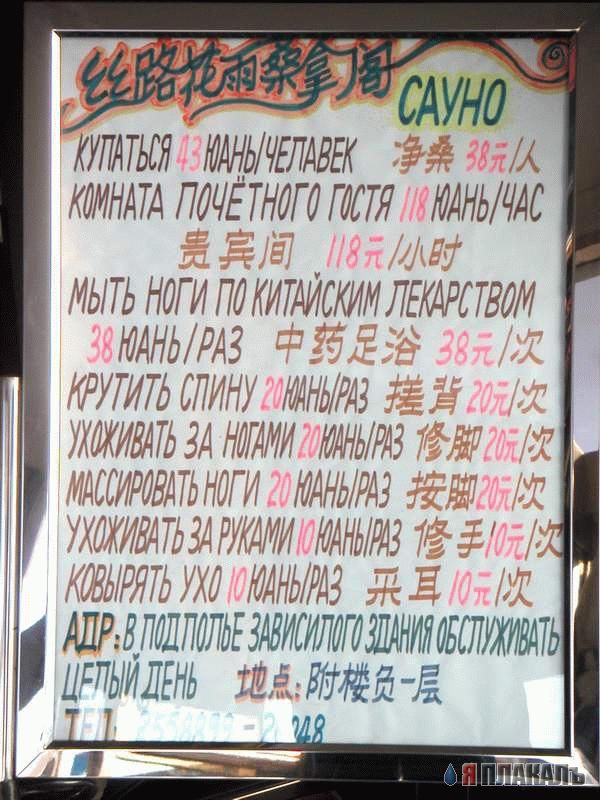 丝路花雨桑拿阁 САУНО
КУПАТЬСЯ 43 ЮАНЬ/ЧЕЛАВЕК 净桑 38元/人
КОМНАТА ПОЧЁТНОГО ГОСТЯ 118 ЮАНЬ/ЧАС
贵宾间 118元/小时
МЫТЬ НОГИ ПО КИТАЙСКИМ ЛЕКАРСТВОМ
38 ЮАНЬ/РАЗ 中药足浴 38元/次
КРУТИТЬ СПИНУ 20 ЮАНЬ/РАЗ 搓背 20元/次
УХОЖИВАТЬ ЗА НОГАМИ 20 ЮАНЬ/РАЗ 修脚 20元/次
МАССИРОВАТЬ НОГИ 20 ЮАНЬ/РАЗ 按脚 20元/次
УХОЖИВАТЬ ЗА РУКАМИ 10 ЮАНЬ/РАЗ 修手 10元/次
КОВЫРЯТЬ УХО 10 ЮАНЬ/РАЗ 采耳 10元/次
АДР: В ПОДПОЛЬЕ ЗАВИСИЛОГО ЗДАНИЯ ОБСЛУЖИВАТЬ
ЦЕЛЫЙ ДЕНЬ 地点: 附楼负一层
ТЕЛ:
Я ПЛАКАЛЪ